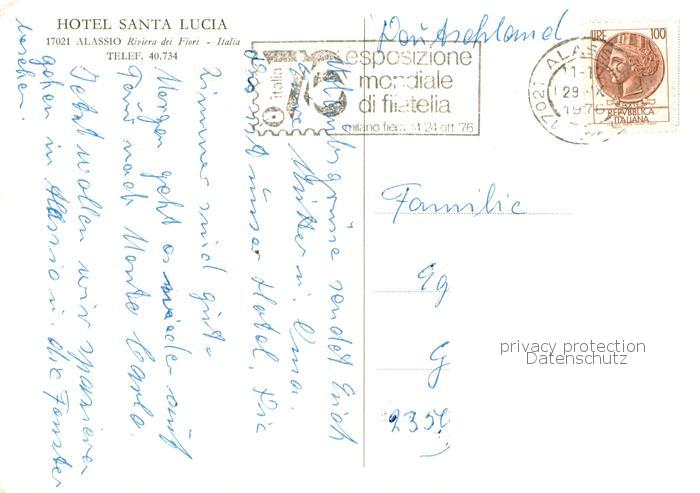 HOTEL SANTA LUCIA
17021 ALASSIO Riviera dei Fiori - Italia
TELEF. 40.734
Deutschland
italia 76
esposizione
mondiale
di filatelia
milano fiera 14 24 ott. '76
17021 ALASSIO
29 IX
1976
LIRE 100
REPVBBLICA
ITALIANA
Urlaubsgrüße sendet Euch
Mutter u. Oma.
Das ist unser Hotel. Die
Zimmer sind gut.
Morgen geht es wieder auf
Tour nach Monte Carlo.
Jetzt wollen wir spazieren
gehen in Alassio u. die Fenster
besehen.
Familie
Eg
G
235
privacy protection
Datenschutz